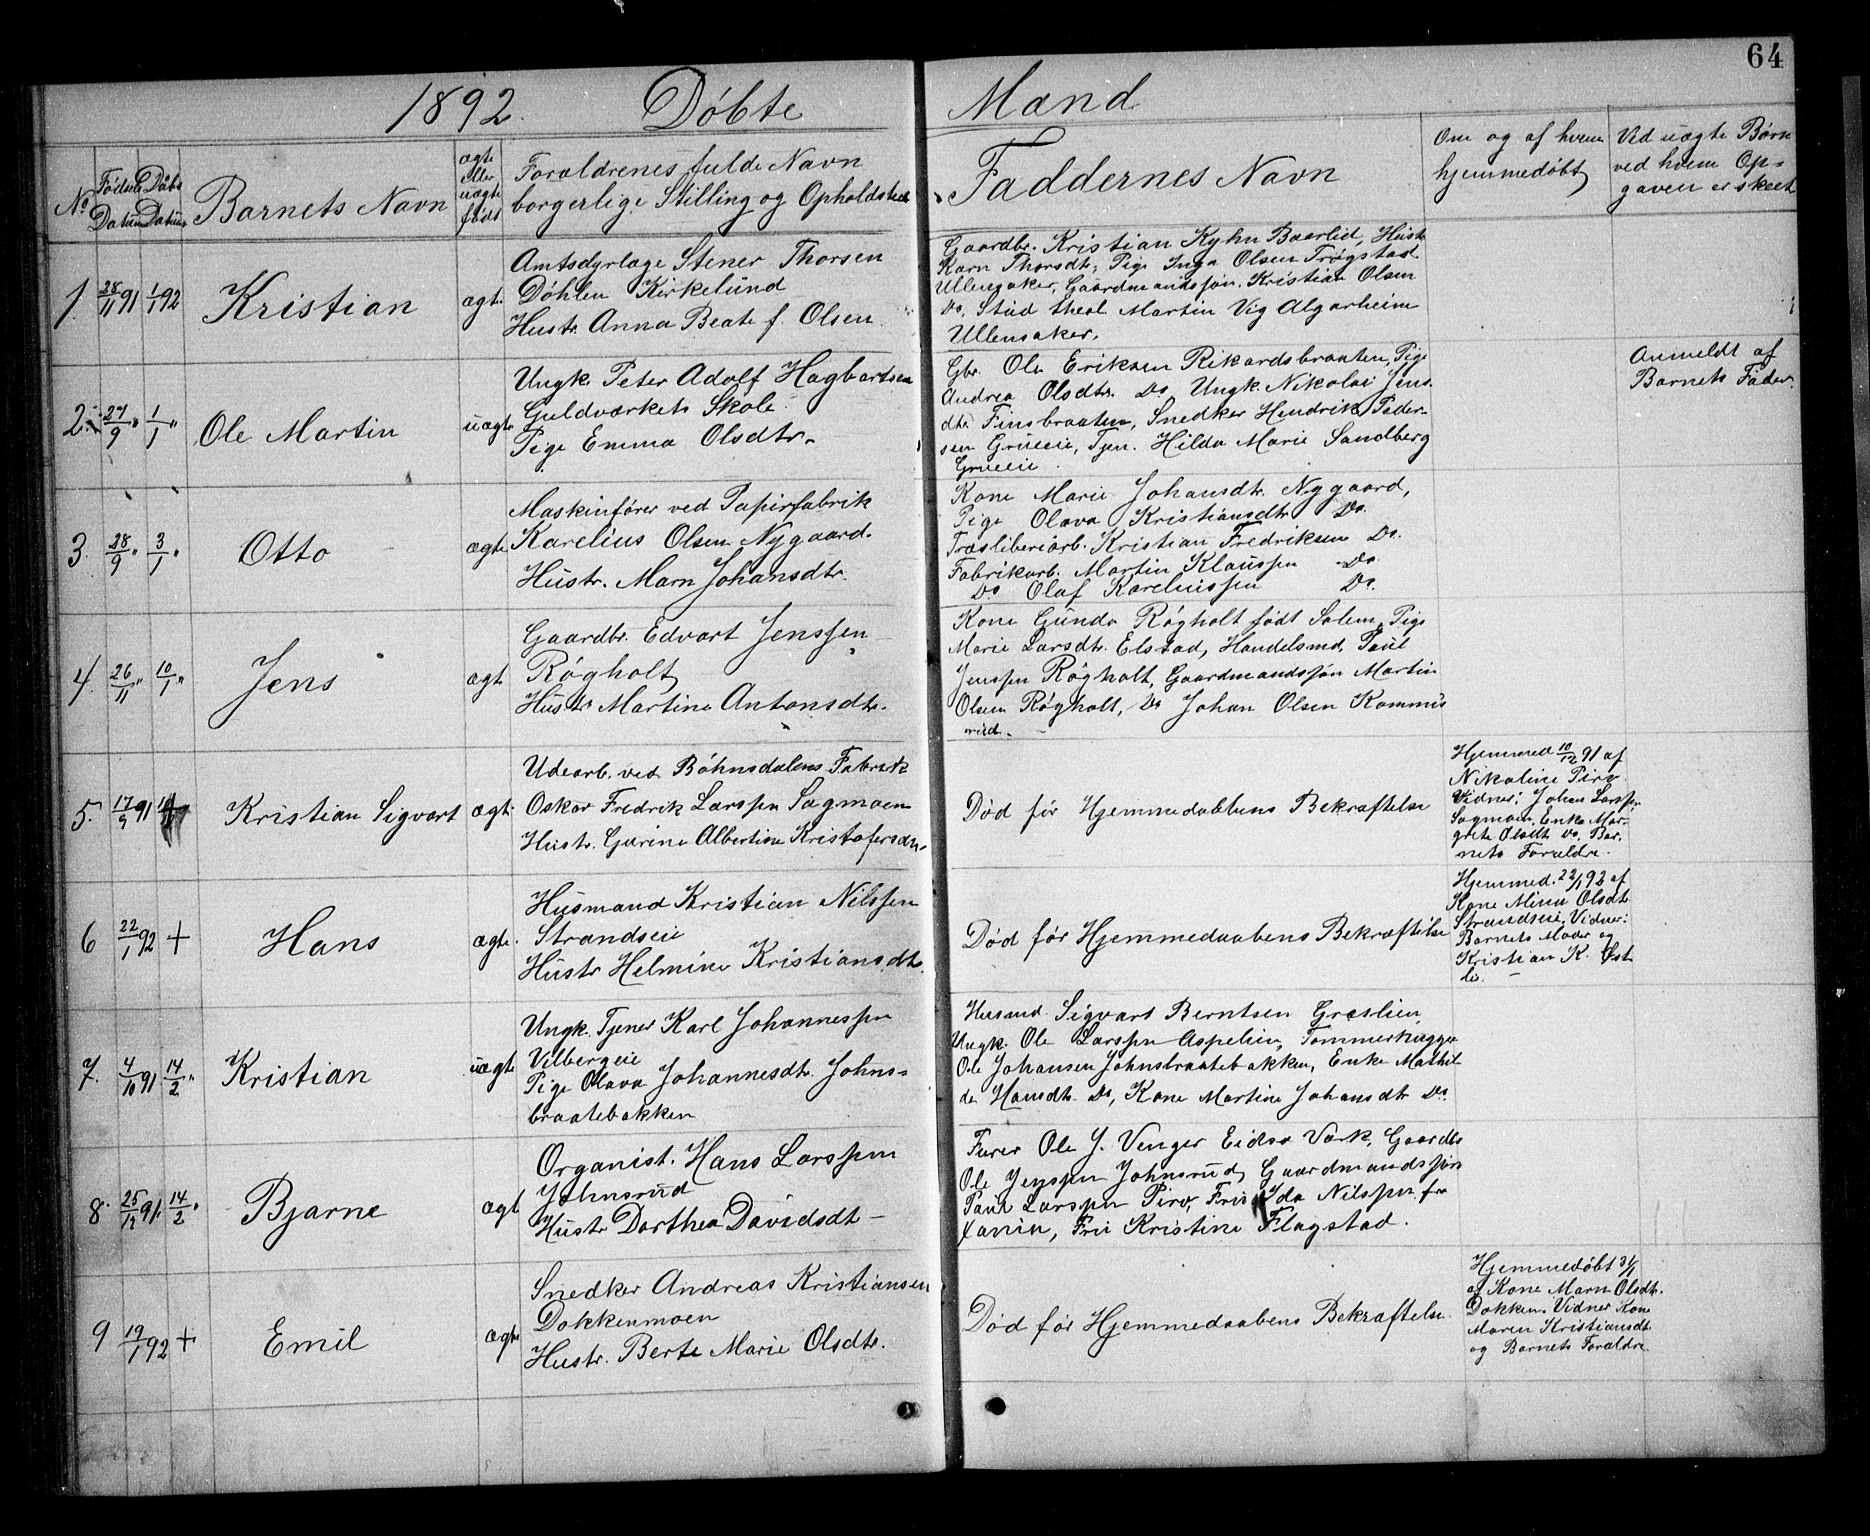 64
1892. Döbte Mænd
No
Födsels Datum
Döbs Datum
Barnets Navn
ægte eller uægte födt
Forældrenes fulde Navn
borgerlige Stilling og Opholdsted
Faddernes Navn
Om og af hvem
hjemmedöbt
Ved uægte Børn
ved hvem Op-
gaven er skeet
1. 28/11 91 1/1 92 Kristian ægt.
Amtsdyrlæge Stener Thorsen
Döhlen Kirkelund
Hustr. Anna Beate f. Olsen
Gaardbr. Kristian Kyhn Baarlid, Hustr.
Karn Thorsdt., Pige Inga Olsen Frøgstad
Ullensaker, Gaardmandssøn. Kristian Olsen
Do, Stud theol Martin Vig Algarheim
Ullensaker.
2. 27/9 " 1/1 " Ole Martin uægte
Ungk. Peter Adolf Hagbartsen
Guldværkets Skole
Pige Emma Olsdtr.
Gbr. Ole Eriksen Rikardsbraaten, Pige
Andrea Olsdtr. Do. Ungk. Nikolai Jens.
dtr. Finsbraaten, Snedker Hendrik Peder-
sen Grueeie, Tjen. Hilda Marie Sandberg
Grueeie
Anmeldt af
Barnets Fader.
3. 28/9 " 3/1 " Otto ægte
Maskinfører ved Papirfabrik
Karelius Olsen Nygaard.
Hustr. Marn Johansdtr.
Kone Marie Johansdtr. Nygaard,
Pige Olava Kristiansdtr. Do.
Træsliberiarb. Kristian Fredriksen Do.
Fabrikarb. Martin Klaussen Do.
Do Olaf Kareliussen Do.
4. 26/11 " 10/1 " Jens ægt.
Gaardbr. Edvart Jenssen
Røgholt
Hustr. Martine Antonsdtr.
Kone Gunda Røgholt født Solem, Pige
Marie Larsdtr. Elstad, Handelsmd. Paul
Jenssen Røgholt, Gaardmandssøn Martin
Olsen Røgholt, Do Johan Olsen Kommis
rud.
5. 17/9 91 Kristian Sigvart ægt.
Udearb. ved Bøhnsdalens Fabrik
Oskar Fredrik Larssen Sagmoen
Hustr. Gurine Albertine Kristofersdtr.
Død før Hjemmedaabens Bekræftelse
Hjemmed 10/12 91 af
Nikoline Piro.
Vidner: Johan Larssen
Sagmoen, Enke Mar-
grete Olsdt. Do. Bar-
nets Forældre.
6 22/1 92 + Hans ægte.
Husmand Kristian Nilssen
Strandseie
Hustr Helmine Kristiansdtr.
Død før Hjemmedaabens Bekræftelse
Hjemmed. 22/1 92 af
Kone Mina Olsdt.
Strandseie, Vidner:
Barnets Moder og
Kristian K. Øst
lie.
7. 4/10 91 14/2 " Kristian uægte
Ungk. Tjener Karl Johannessen
Vilbergeie
Pige Olava Johannesdtr. Johns-
braatebakken
Husmd. Sigvart Berntsen Græslien,
Ungk. Ole Larssen Aspelien, Tømmerhugger
Ole Johansen Johnsbraatebakken, Enke Mathil-
de Hansdtr. Do, Kone Martine Johansdtr Do.
8. 25/12 91. 14/2 " Bjarne ægt
Organist. Hans Larssen
Johnsrud
Hustr Dorthea Davidsdt
Furer Ole J. Venger Eidsv. Værk, Gaardbr
Ole Jenssen Johnsrud, Gaardmandssøn
Paul Larssen Piro, Frk Ida Nilssen fra
Xania, Fru Kristine Flagstad.
9 19/1 92 + Emil ægte
Snedker Andreas Kristiansen
Dokkenmoen
Hustr. Berte Marie Olsdtr.
Død før Hjemmedaabens Bekræftelse
Hjemmedøbt 31/1
af Kone Marn Olsdtr.
Dokken. Vidner Kone
Maren Kristiansdt.
og Barnets Forældre.